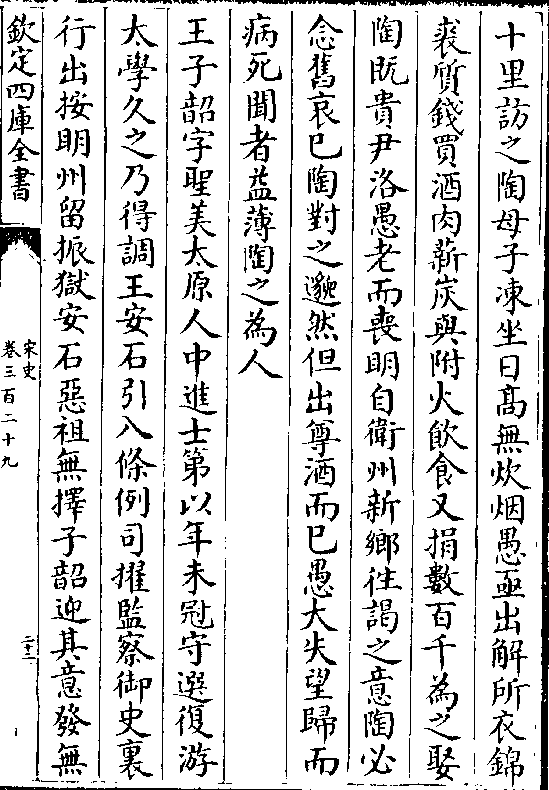 十里訪之陶母子凍坐日髙無炊烟愚亟出解所衣錦
裘質錢買酒肉薪炭與附火飲食又捐數百千為之娶
陶既貴尹洛愚老而喪明自衛州新鄉徃謁之意陶必
念舊哀已陶對之邈然但出尊酒而已愚大失望歸而
病死聞者益薄陶之為人
王子韶字聖美太原人中進士第以年未冠守選復游
太學久之乃得調王安石引入條例司擢監察御史裏
行出按明州留振獄安石惡祖無擇子韶迎其意發無
欽定四庫全書
宋史
卷三百二十九
二十二